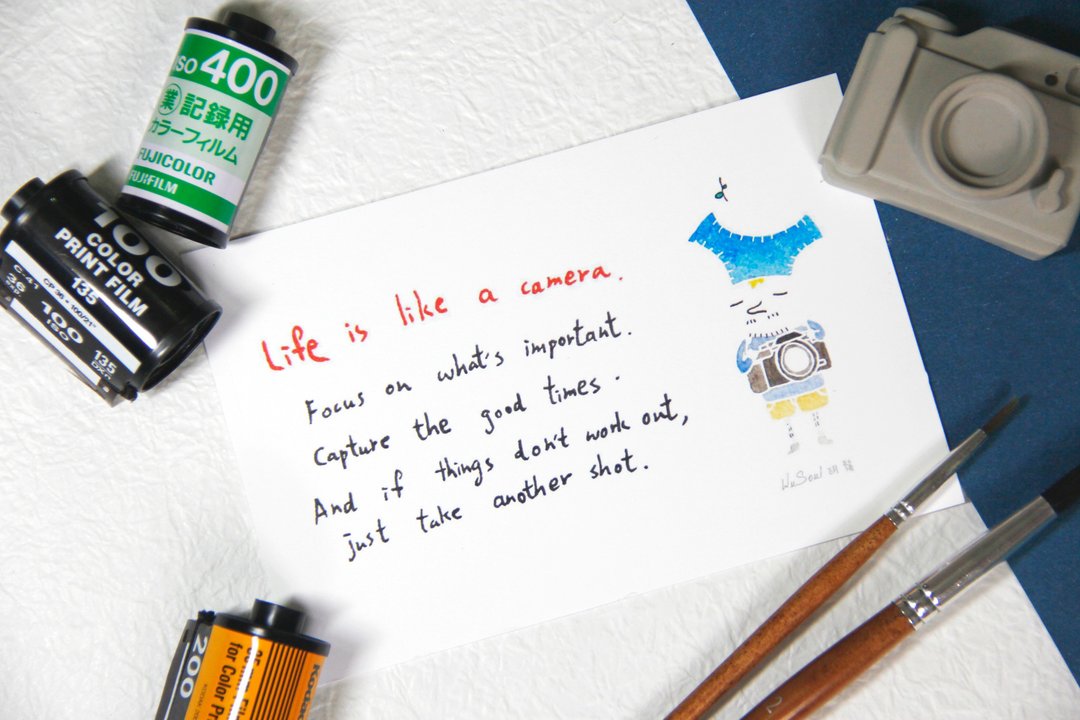 ISO 400
業 記録用
カラーフィルム
FUJICOLOR
FUJIFILM
100
COLOR
PRINT FILM
135
C-41 CP 36 • 100/21°
36
EXP
100
ISO
135
DXN
Life is like a camera.
Focus on what's important.
Capture the good times.
And if things don't work out,
just take another shot.
WuSoul
200
for Color
Kodak
2